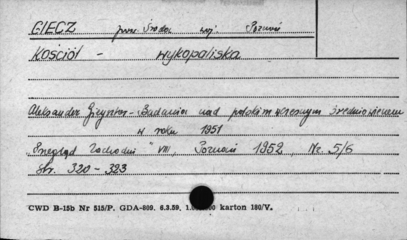 GIECZ pow. Środa woj. Poznań
Kościół - wykopaliska
Aleksander Gizystor - Badania nad polskim wczesnym średniowieczem
w roku 1951
Przegląd Zachodni" VIII, Poznań 1952, Nr. 5/6
Str. 320-323
CWD B-15b Nr 515/P. GDA-809. 6.3.59. karton 180/V.